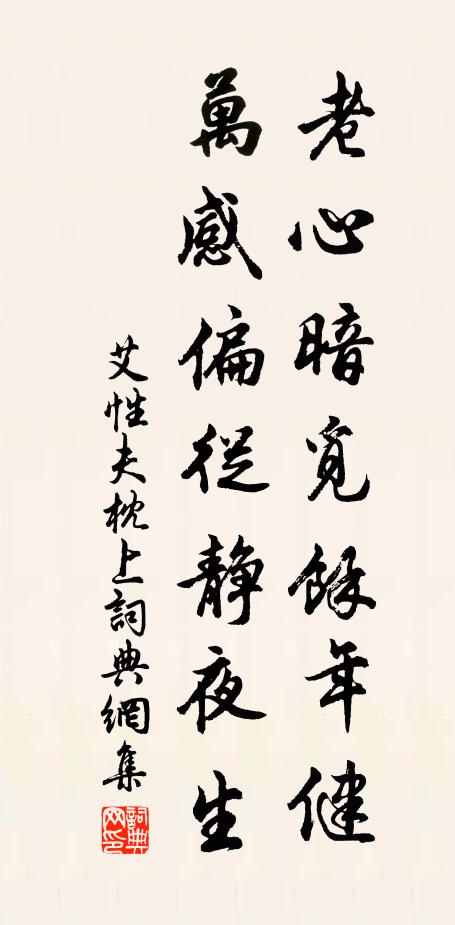 老心暗覓餘年健
萬感偏從靜夜生
艾性夫枕上詞典網集
詞典網印